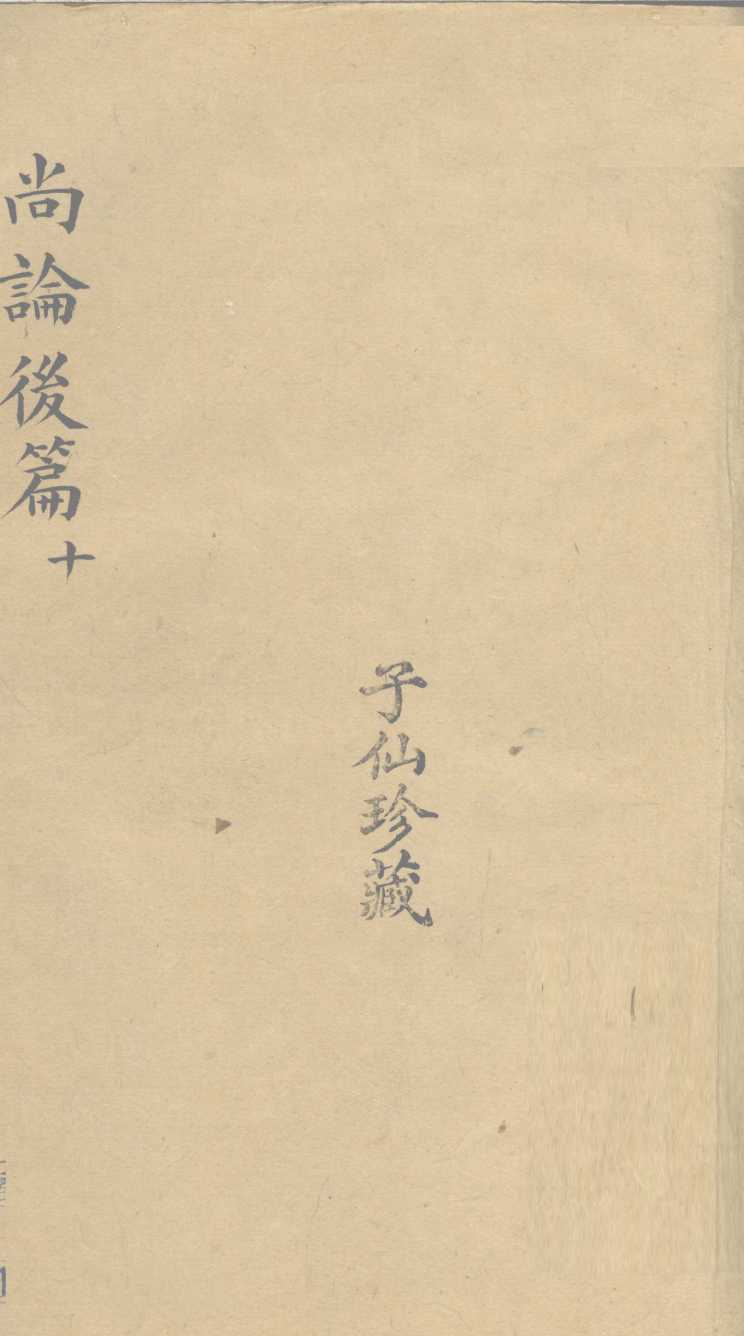 子仙珍藏
尚論後篇十